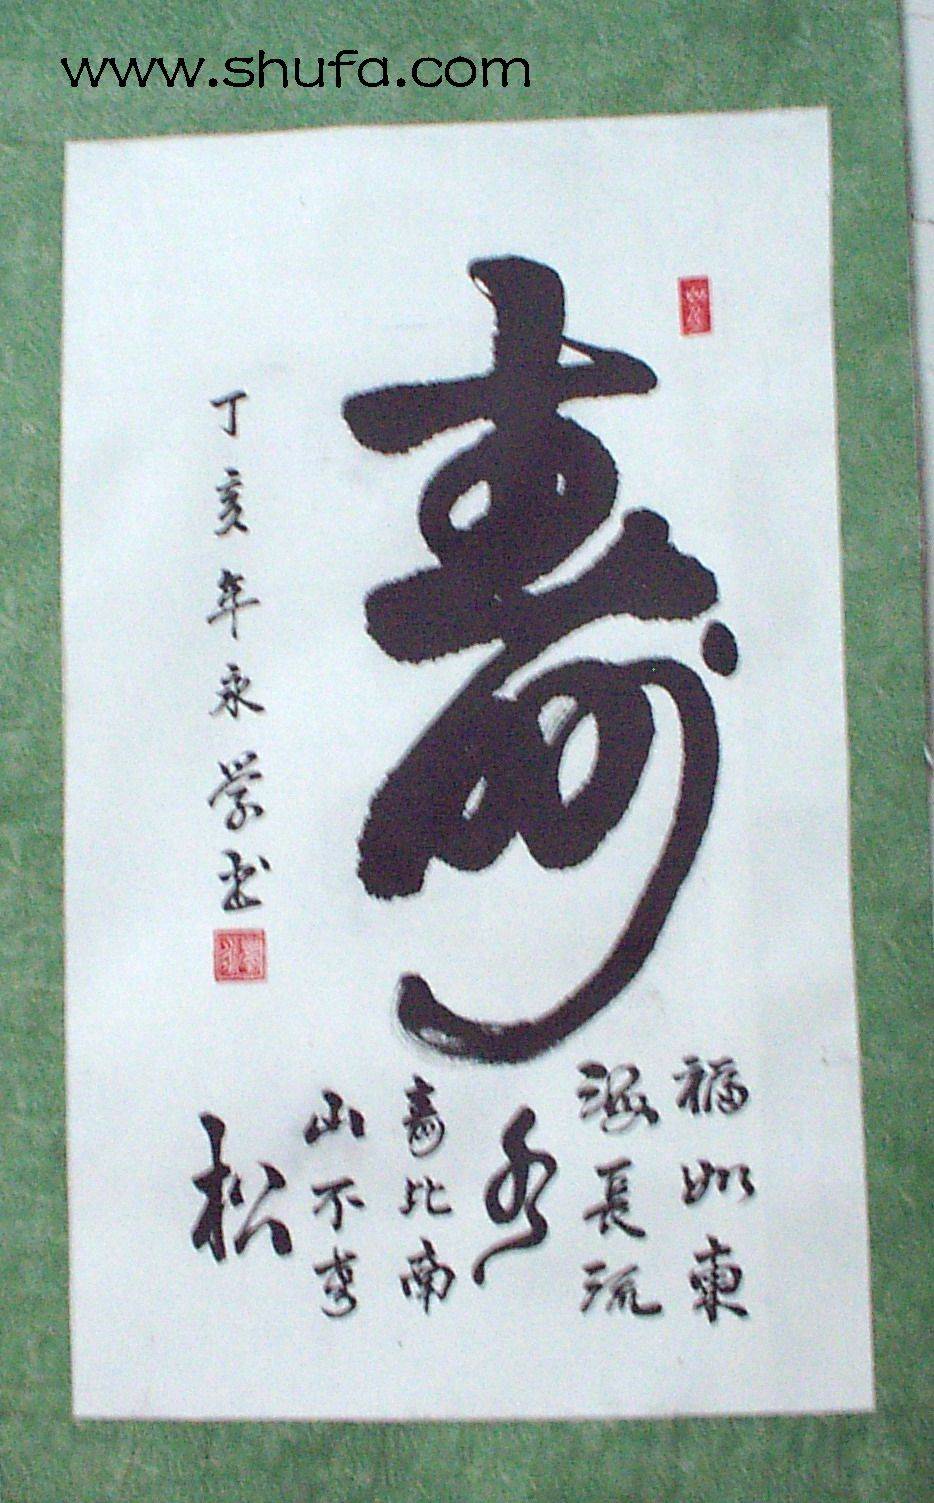 www.shufa.com
壽
福如東
海長流
水
壽比南
山不老
松
丁亥年永学书